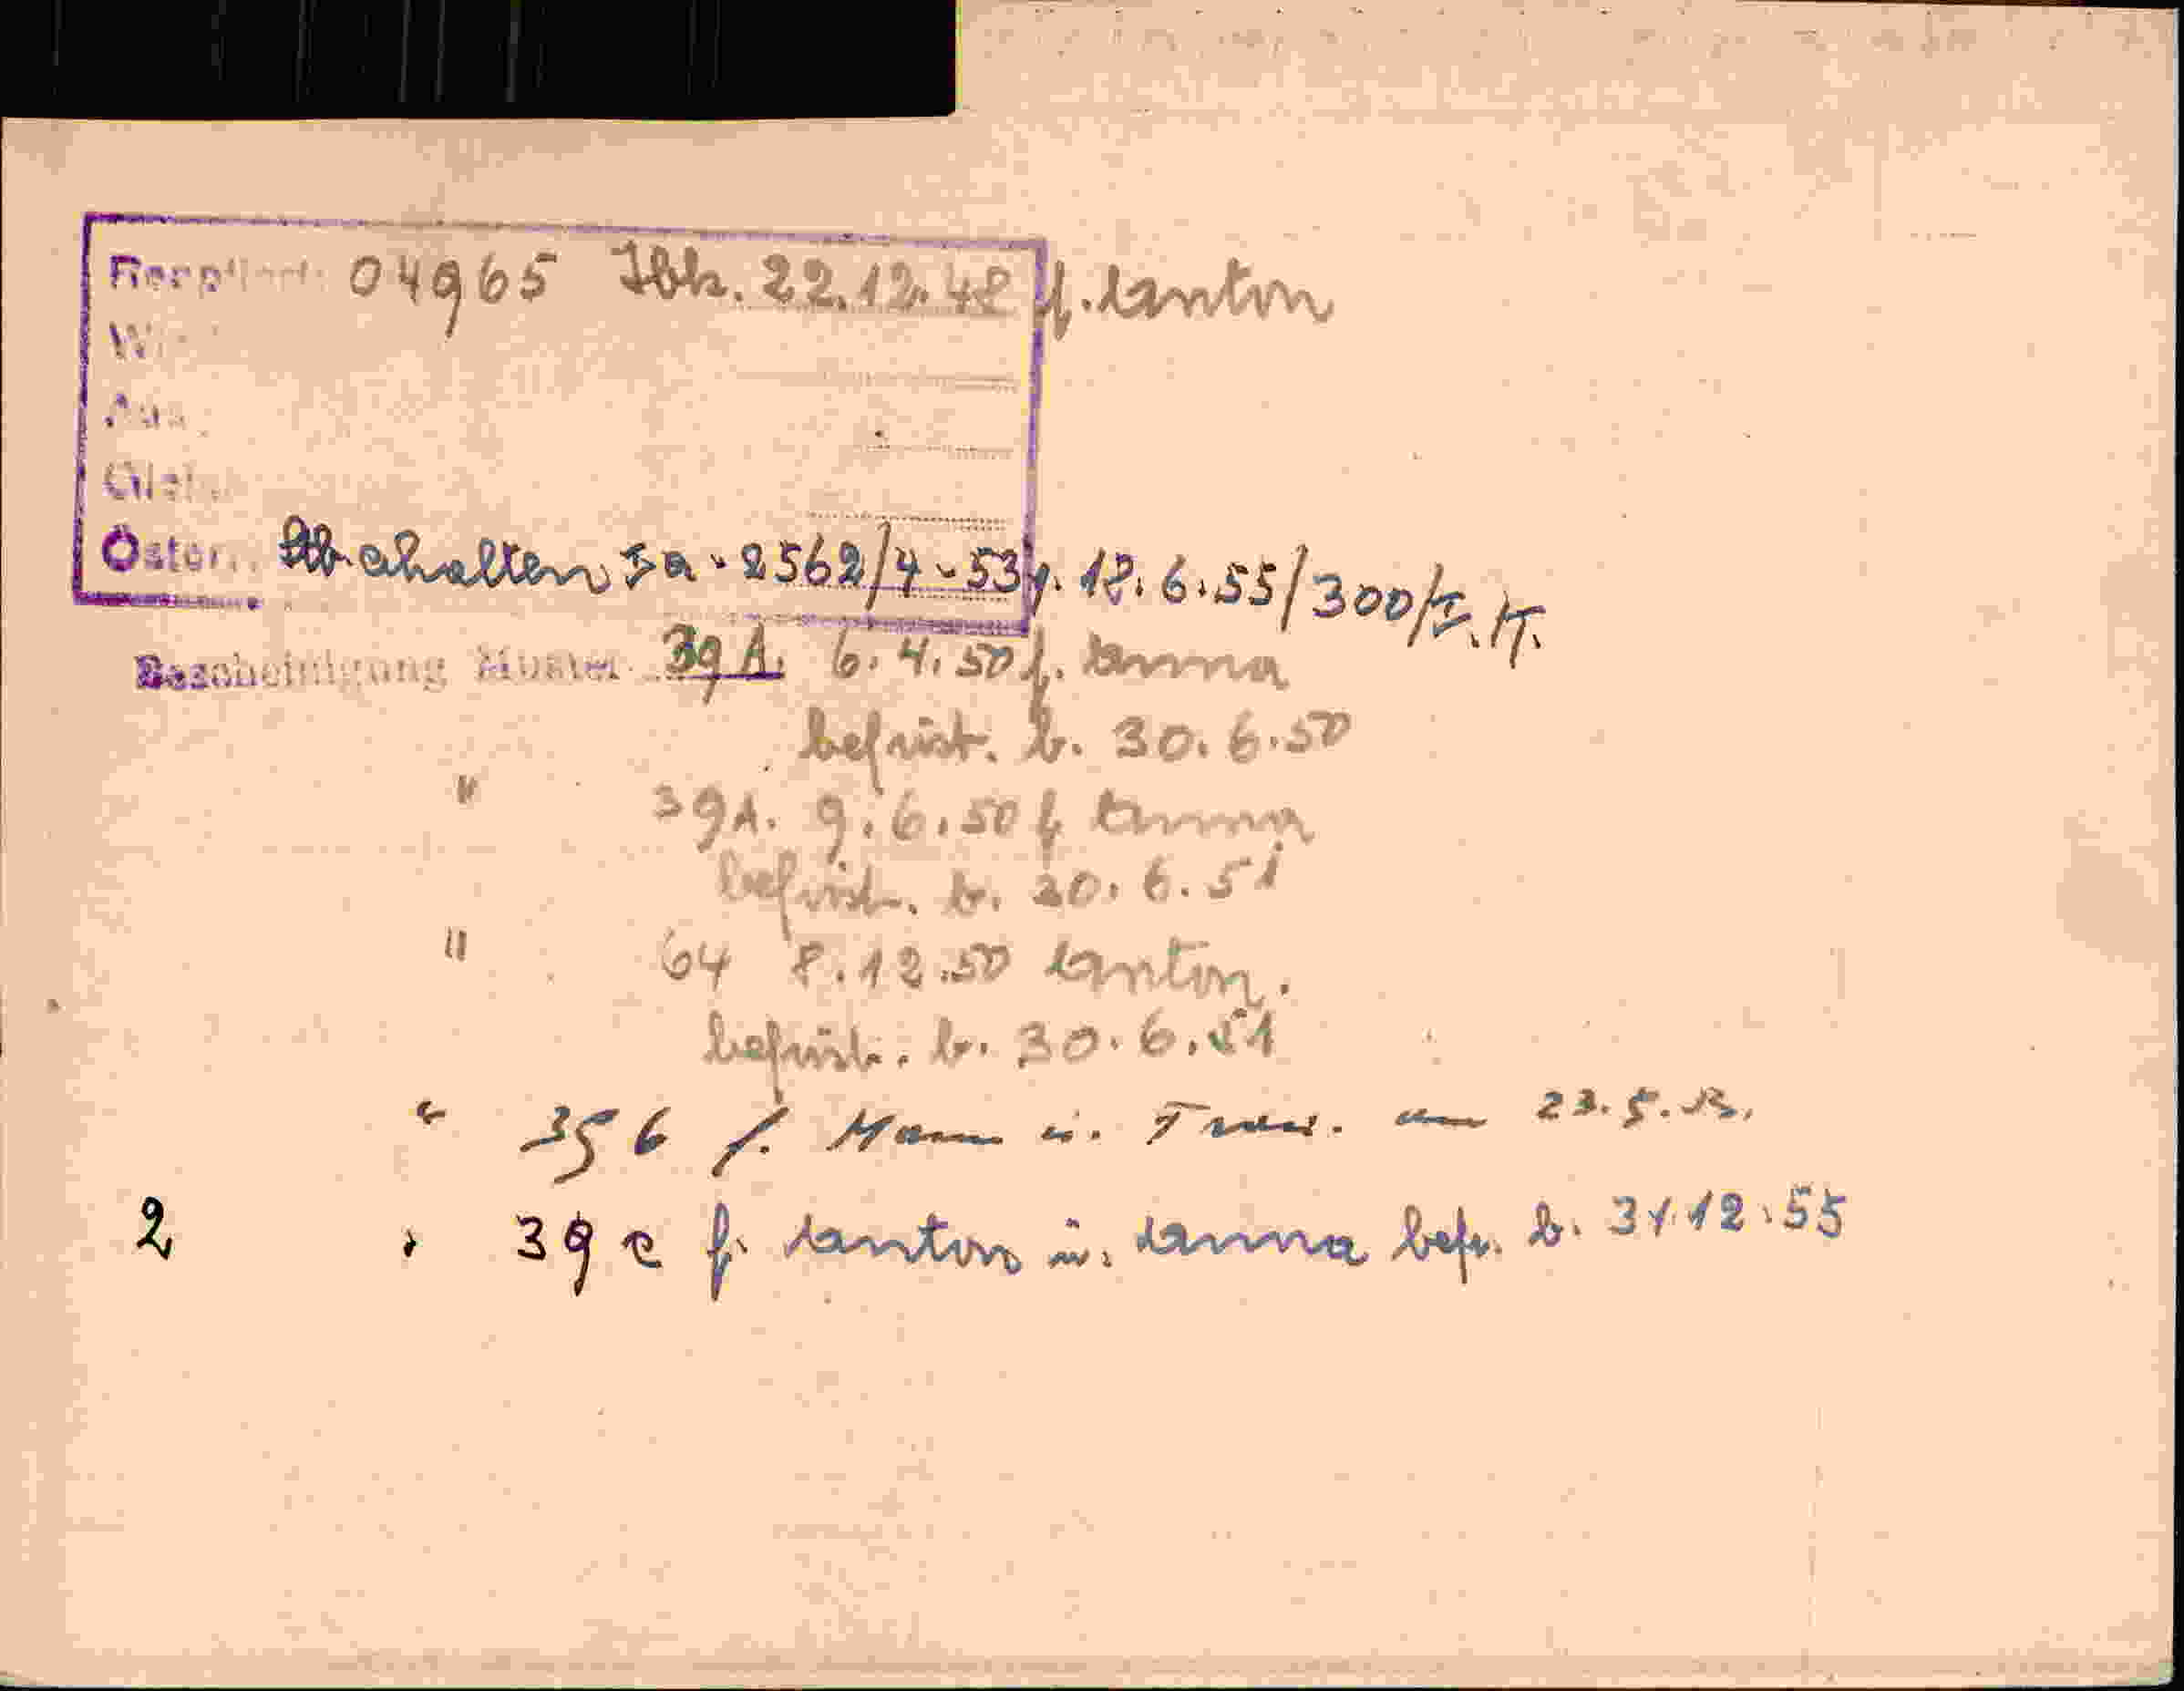 04965 Ibk. 22.12.48 f. Anton
Österr. erhalten Ia-2562/4-53 v. 18.6.55/300/
Bescheinigung Muster 39A. 6.4.50 f. Anna
befrist. b. 30.6.50
" 39A. 9.6.50 f Anna
befrist. b. 30.6.51
" 64 8.12.50 Anton.
befrist. b. 30.6.51
" f. Mann u. Frau. am 23.5.
2 " 39 c f. Anton u. Anna befr. b. 31.12.55